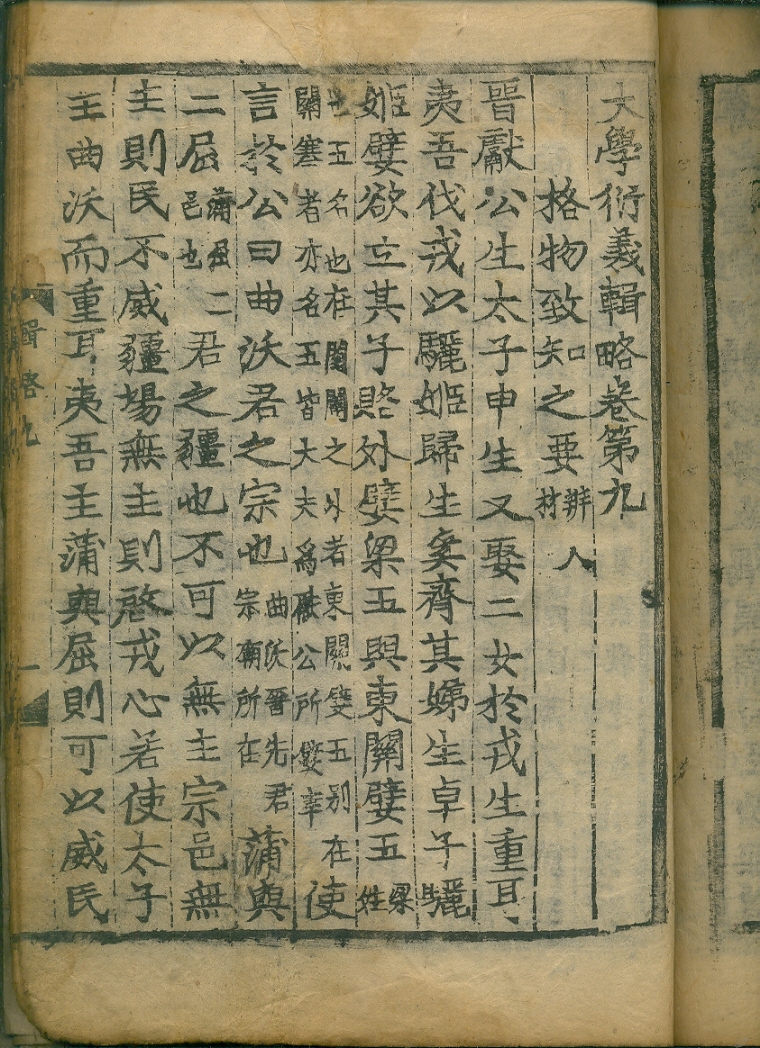 大學衍義輯略卷第九
格物致知之要 辨人材
晉獻公生太子申生又娶二女於戎生重耳
夷吾伐戎以驪姬歸生奚齊其娣生卓子驪
姬嬖欲立其子賂外嬖梁五與東關嬖五 姓梁
也五名也在閨闥之外者東關嬖五別在關塞者亦名五皆大夫爲獻公所嬖幸 使
言於公曰曲沃君之宗也 曲沃晉先君宗廟所在 蒲與
二屈 蒲屈二邑也 君之疆也不可以無主宗邑無
主則民不威疆場無主則啓戎心若使太子
主曲沃而重耳夷吾主蒲與屈則可以威民
輯略九
一